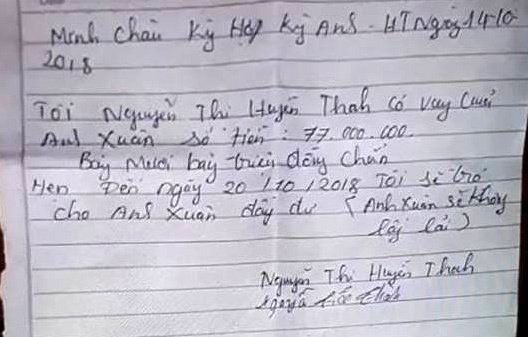 Minh Châu Kỳ Hợp Kỳ Anh - HT Ngày 14-10
2018
Tôi Nguyễn Thị Huyền Thanh có vay của
Anh Xuân số tiền : 77.000.000.
Bảy Mươi bảy triệu đồng chẵn
Hẹn Đến ngày 20/10/2018 Tôi sẽ trả
cho Anh Xuân đầy đủ ( Anh Xuân sẽ không
lấy lãi )
Nguyễn Thị Huyền Thanh